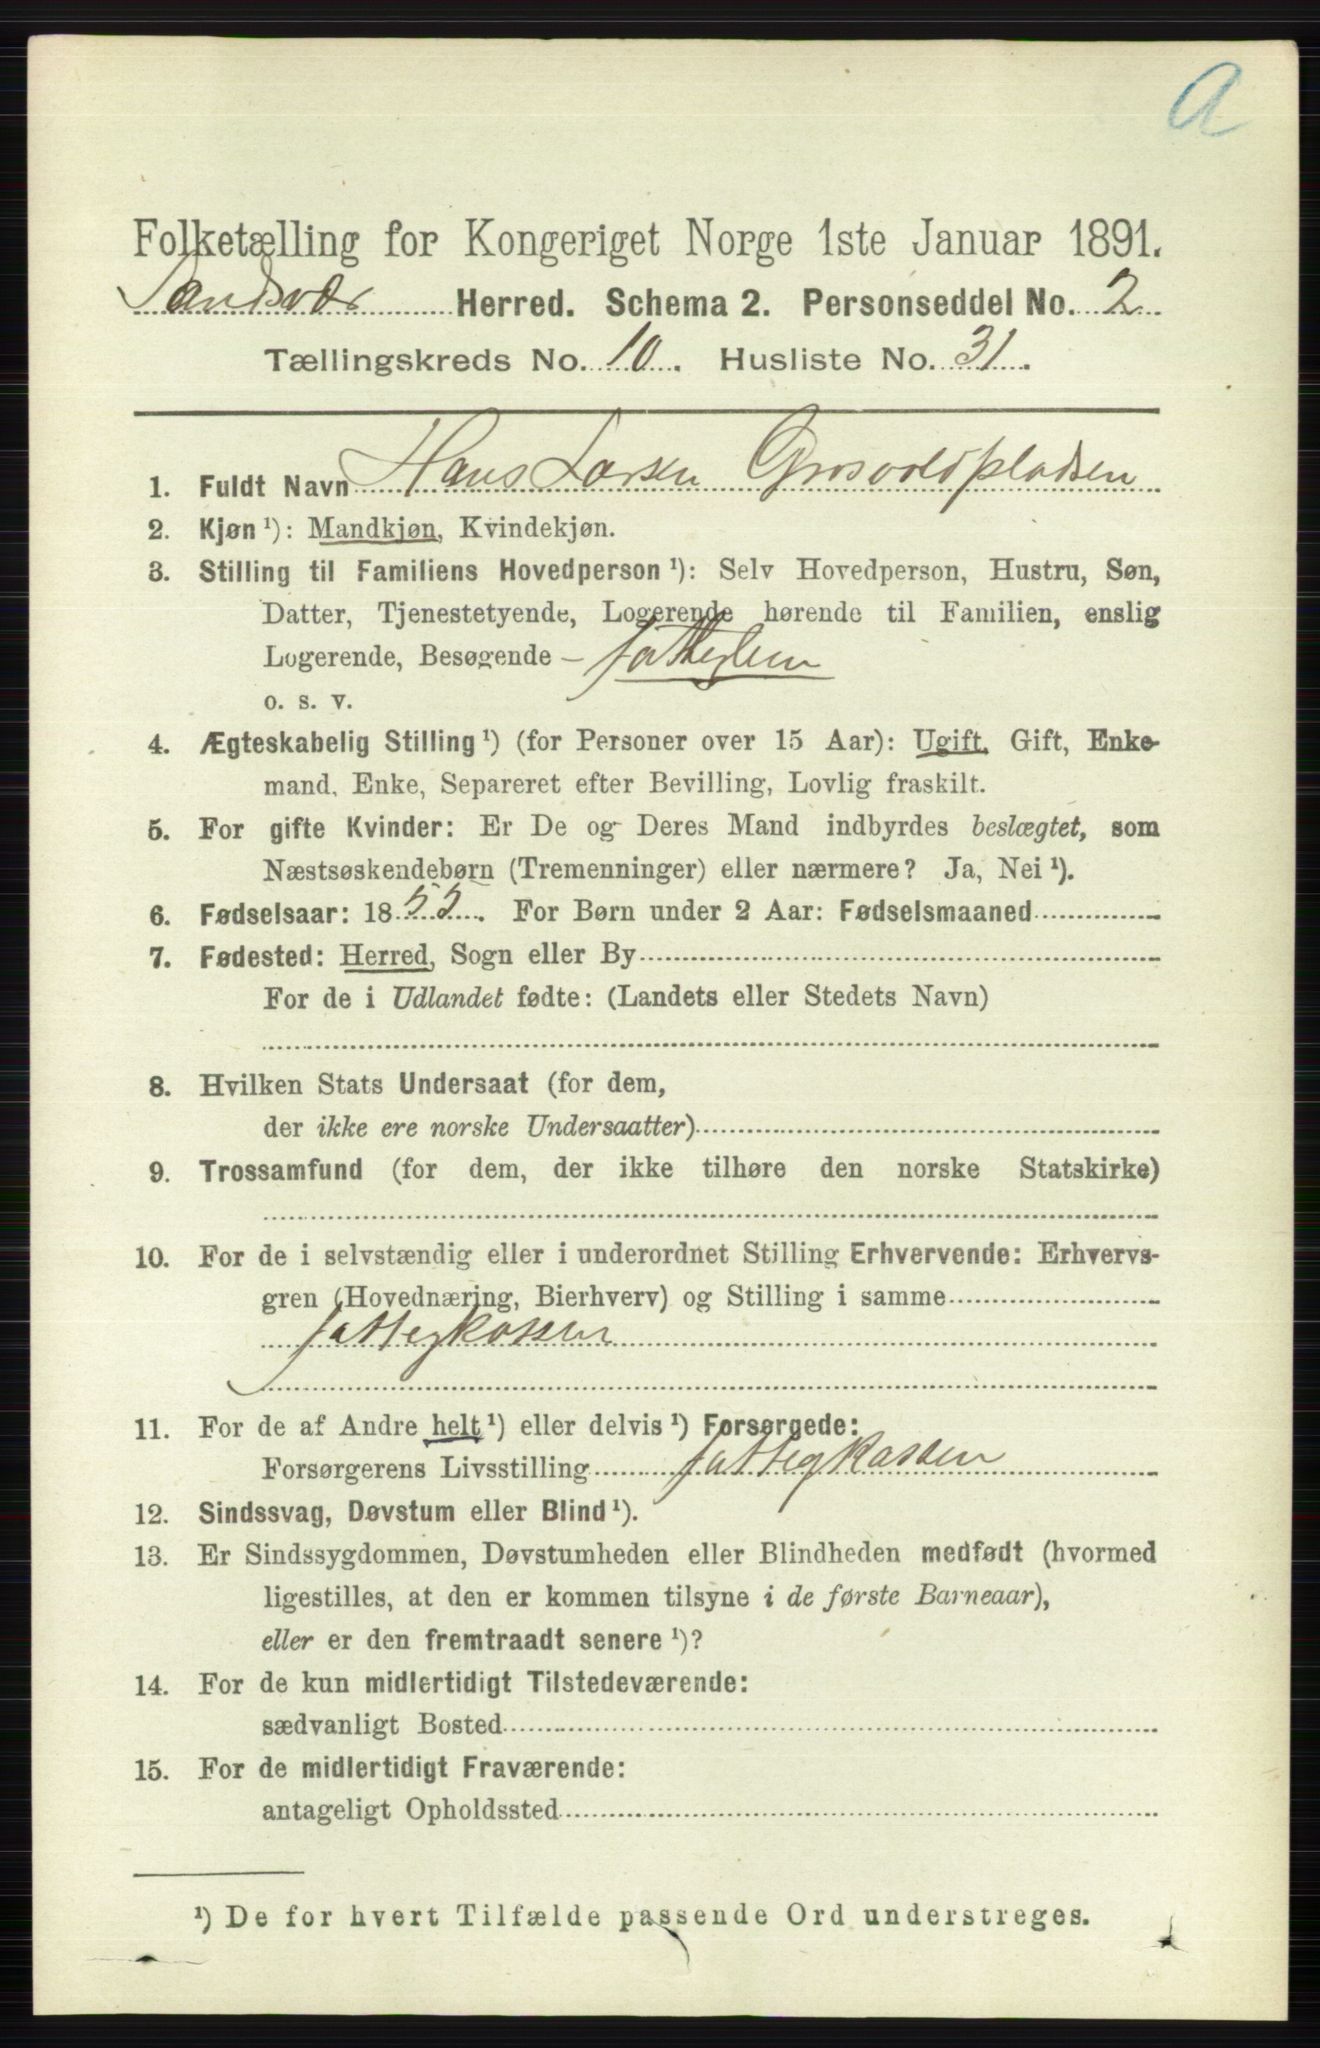 a
Folketælling for Kongeriget Norge 1ste Januar 1891.
Sandsvær Herred. Schema 2. Personseddel No. 2
Tællingskreds No. 10. Husliste No. 31.
1. Fuldt Navn Hans Larsen Grosvoldpladsen
2. Kjøn ¹): Mandkjøn, Kvindekjøn.
3. Stilling til Familiens Hovedperson ¹): Selv Hovedperson, Hustru, Søn,
Datter, Tjenestetyende, Logerende hørende til Familien, enslig
Logerende, Besøgende – fatteglem
o. s. v.
4. Ægteskabelig Stilling ¹) (for Personer over 15 Aar): Ugift, Gift, Enke-
mand, Enke, Separeret efter Bevilling, Lovlig fraskilt.
5. For gifte Kvinder: Er De og Deres Mand indbyrdes beslægtet, som
Næstsøskendebørn (Tremenninger) eller nærmere? Ja, Nei ¹).
6. Fødselsaar: 1855. For Børn under 2 Aar: Fødselsmaaned
7. Fødested: Herred, Sogn eller By
For de i Udlandet fødte: (Landets eller Stedets Navn)
8. Hvilken Stats Undersaat (for dem,
der ikke ere norske Undersaatter)
9. Trossamfund (for dem, der ikke tilhøre den norske Statskirke)
10. For de i selvstændig eller i underordnet Stilling Erhvervende: Erhvervs-
gren (Hovednæring, Bierhverv) og Stilling i samme
fattegkassen
11. For de af Andre helt ¹) eller delvis ¹) Forsørgede:
Forsørgerens Livsstilling fattegkassen
12. Sindssvag, Døvstum eller Blind ¹).
13. Er Sindssygdommen, Døvstumheden eller Blindheden medfødt (hvormed
ligestilles, at den er kommen tilsyne i de første Barneaar),
eller er den fremtraadt senere ¹)?
14. For de kun midlertidigt Tilstedeværende:
sædvanligt Bosted
15. For de midlertidigt Fraværende:
antageligt Opholdssted
¹) De for hvert Tilfælde passende Ord understreges.